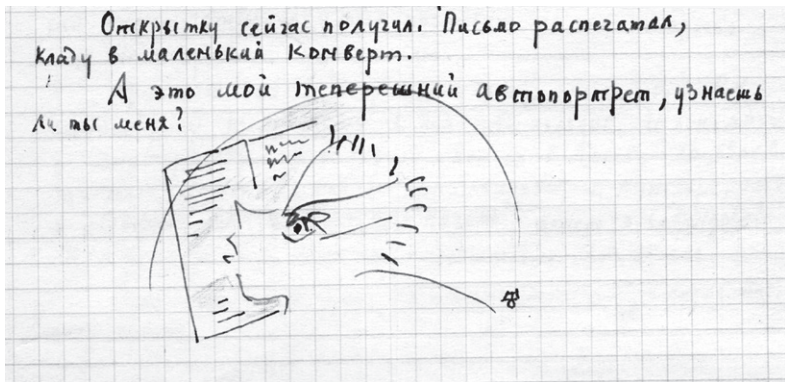 Открытку сейчас получил. Письмо распечатал,
кладу в маленький конверт.
А это мой теперешний автопортрет, узнаешь
ли ты меня?